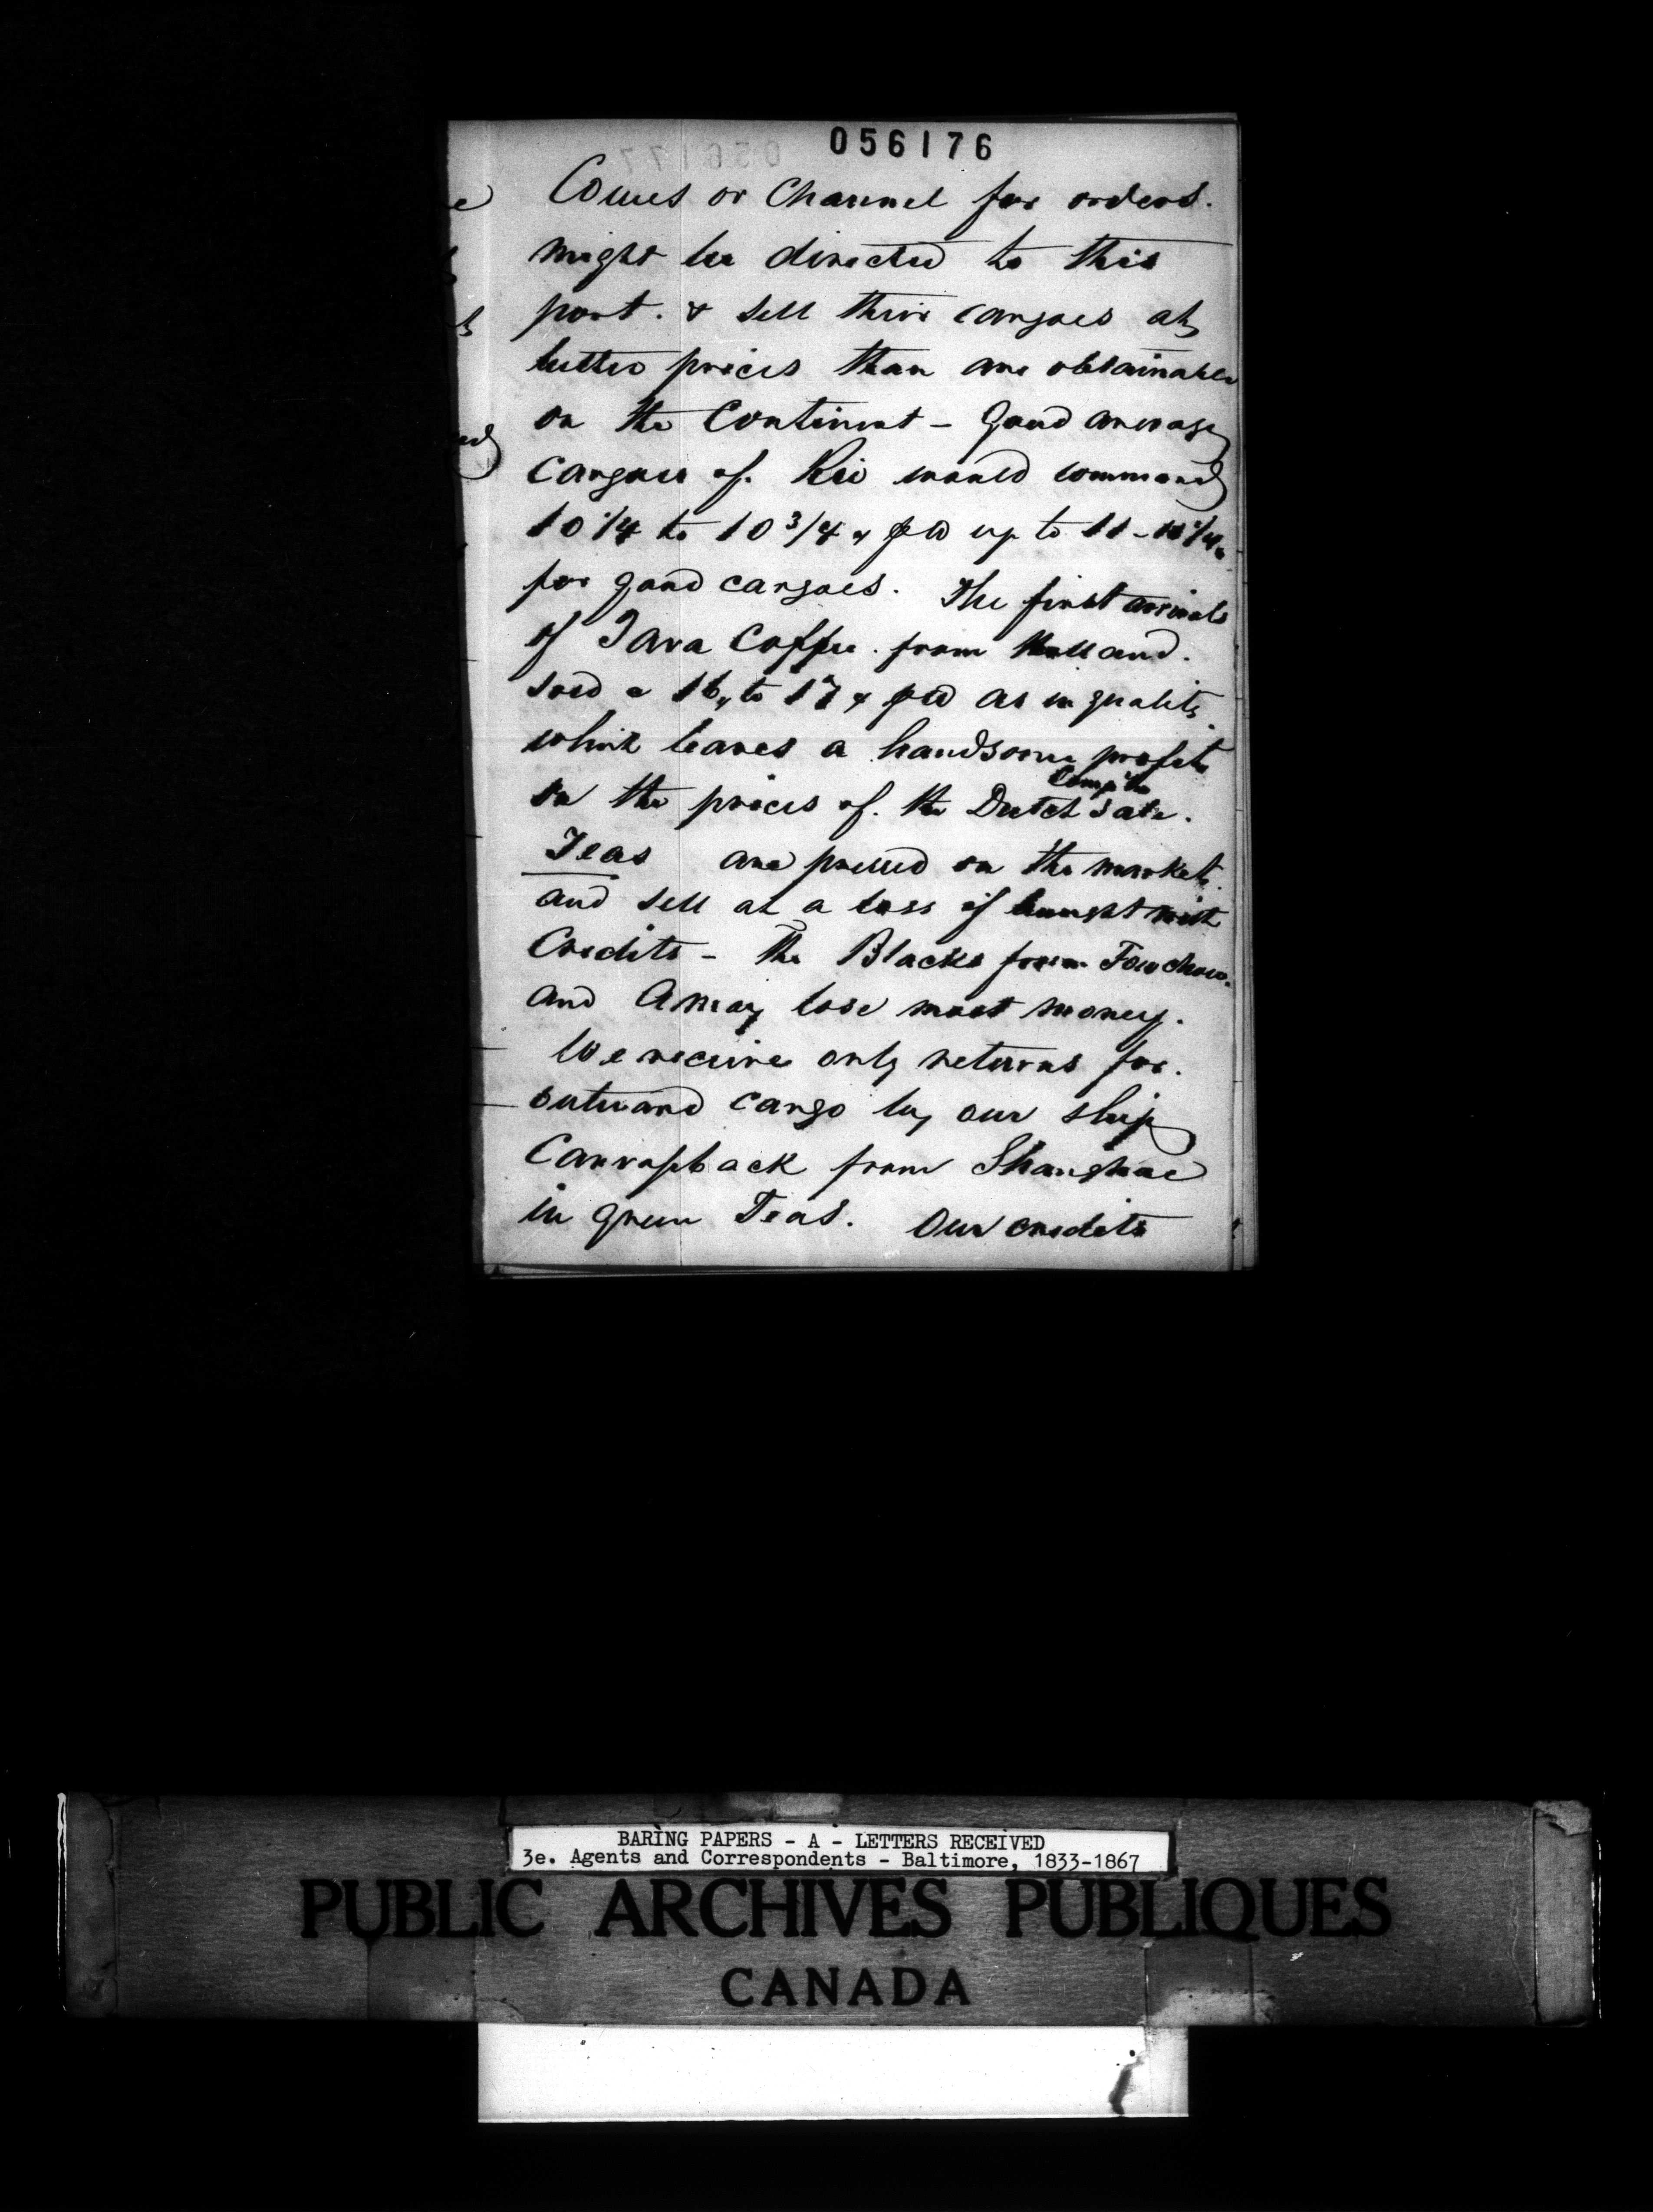 056176
Cowes or Channel for orders.
might be directed to this
port. & sell their cargoes at
better prices than are obtainable
on the Continent - Good average
cargoes of. Rio would command
10 1/4 to 10 3/4 pd up to 11 - 11 1/4
for good cargoes. The first arrivals
of Java Coffee. from Holland.
sold a 16 to 17 pd as in quality
which leaves a handsome profit
on the prices of. the Dutch Comp'ies Sale.
Teas are pressed on the market.
and sell at a loss if bought with
Credits - The Blacks from Fowchow.
and Amoy lose most money.
We receive only returns for.
outward cargo by our ship
Canvasback from Shanghae
in green Teas. Our credits
BARING PAPERS - A - LETTERS RECEIVED
3e. Agents and Correspondents - Baltimore, 1833-1867
PUBLIC ARCHIVES PUBLIQUES
CANADA